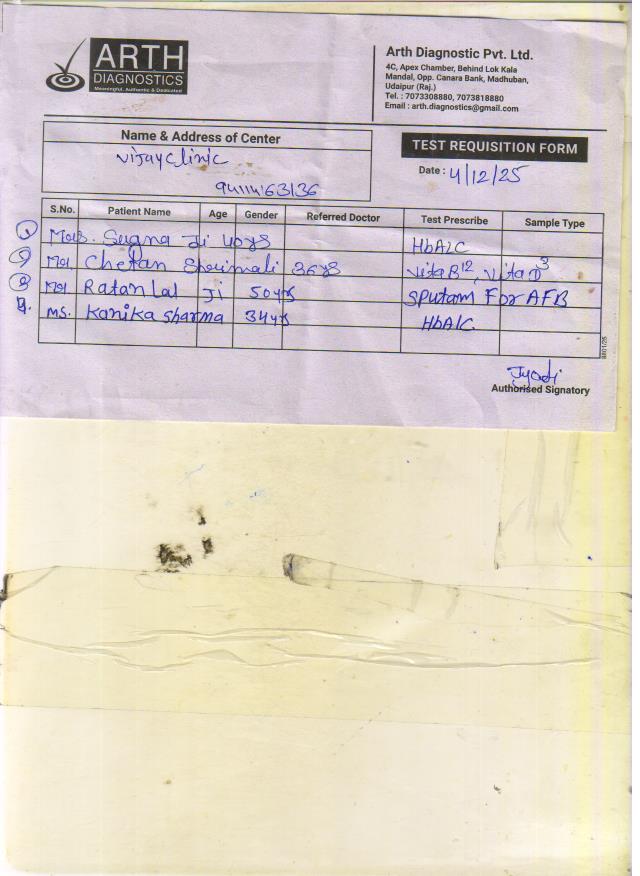 ARTH
DIAGNOSTICS
Meaningful, Authentic & Dedicated
Arth Diagnostic Pvt. Ltd.
4C, Apex Chamber, Behind Lok Kala
Mandal, Opp. Canara Bank, Madhuban,
Udaipur (Raj.)
Tel. : 7073308880, 7073818880
Email : arth.diagnostics@gmail.com
Name & Address of Center
Vijay Clinic
9414163136
TEST REQUISITION FORM
Date : 4/12/25
S.No. Patient Name Age Gender Referred Doctor Test Prescribe Sample Type
1 Mrs. Sugna Ji 40yrs HbA1C
2 Mr. Chetan Shrimali 36yrs Vita B12, Vita D3
3 Mr. Ratan Lal Ji 50yrs Sputam For AFB
4. MS. Kanika Sharma 34yrs HbA1C
Jyoti
Authorised Signatory